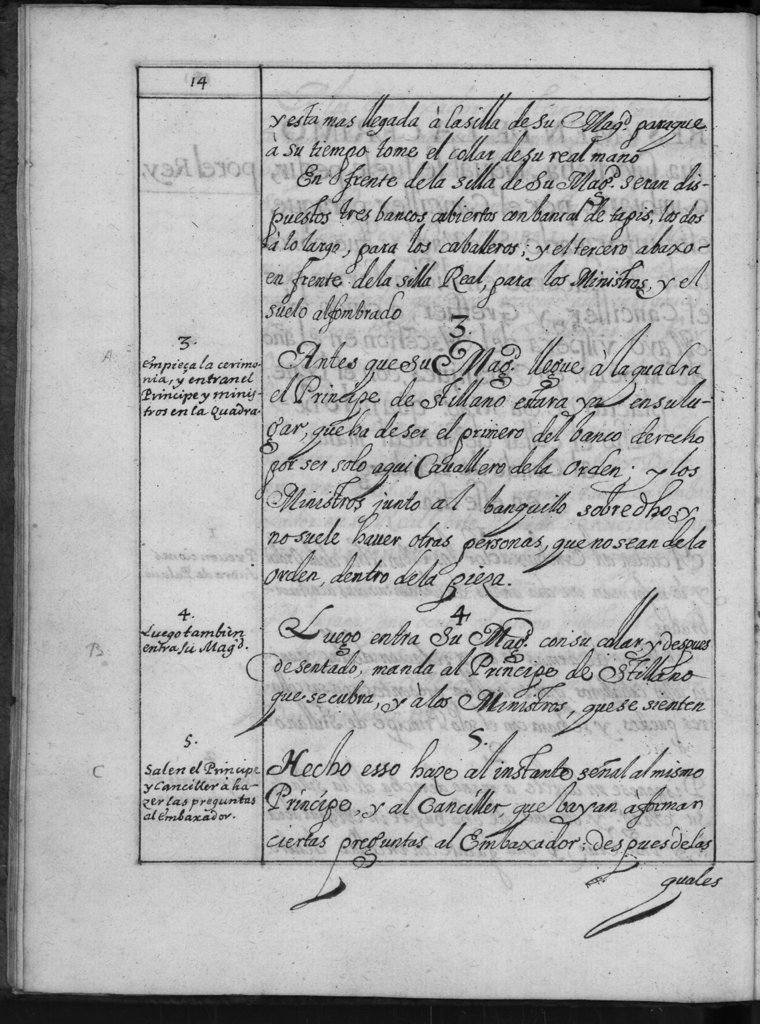 14
y esta mas llegada à la silla de su Mag.d paraque
à su tiempo tome el collar de su real mano
En frente de la silla de Su Mag.d seran dis-
puestos tres bancos cubiertos con bancal de tapis, los dos
à lo largo, para los caballeros; y el tercero abaxo-
en frente de la silla Real, para los Ministros, y el
suelo alfombrado
3.
3.
Empieça la cerimo-
nia, y entran el
Principe y minis-
tros en la Quadra.
Antes que su Mag.d llegue à la quadra
el Principe de Stillano estara ya en su lu-
gar, que ha de ser el primero del banco derecho
por ser solo aqui Cavallero de la Orden; y los
Ministros junto al banquillo sobredho, y
no suele haver otras personas, que no sean de la
orden, dentro de la pieza.
A
4.
4.
Luego tambien
entra su Mag.d.
Luego entra Su Mag.d con su collar, y despues
de sentado, manda al Principe de Stillano
que se cubra, y à los Ministros, que se sienten
B
5.
5.
Salen el Principe
y Canciller à ha-
zer las preguntas
al Embaxador.
Hecho esso haze al instante señal al mismo
Principe, y al Canciller, que bayan à formar
ciertas preguntas al Embaxador; despues de las
C
quales